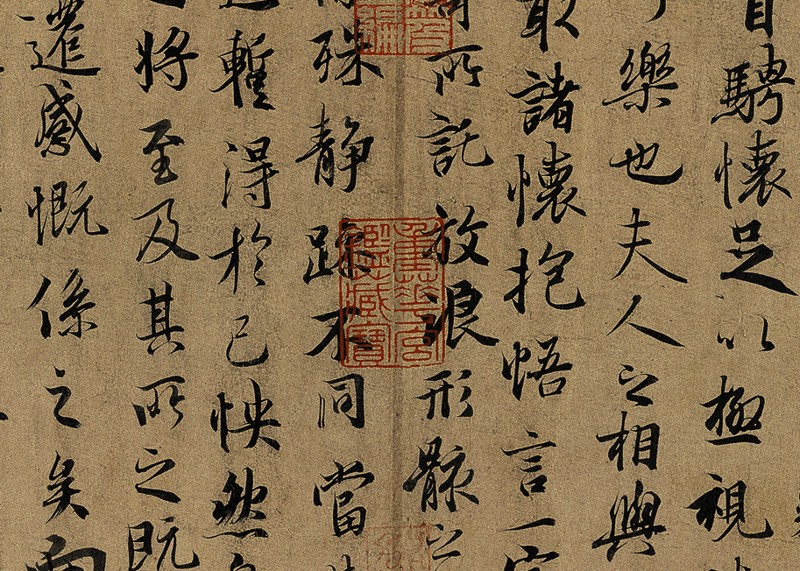 騁懷足以極視
樂也夫人之相與
取諸懷抱悟言一室
所託放浪形骸之
殊静躁不同當
暫得於己怏然
將至及其所之既
遷感慨係之矣向
重華宮
鑑藏寶